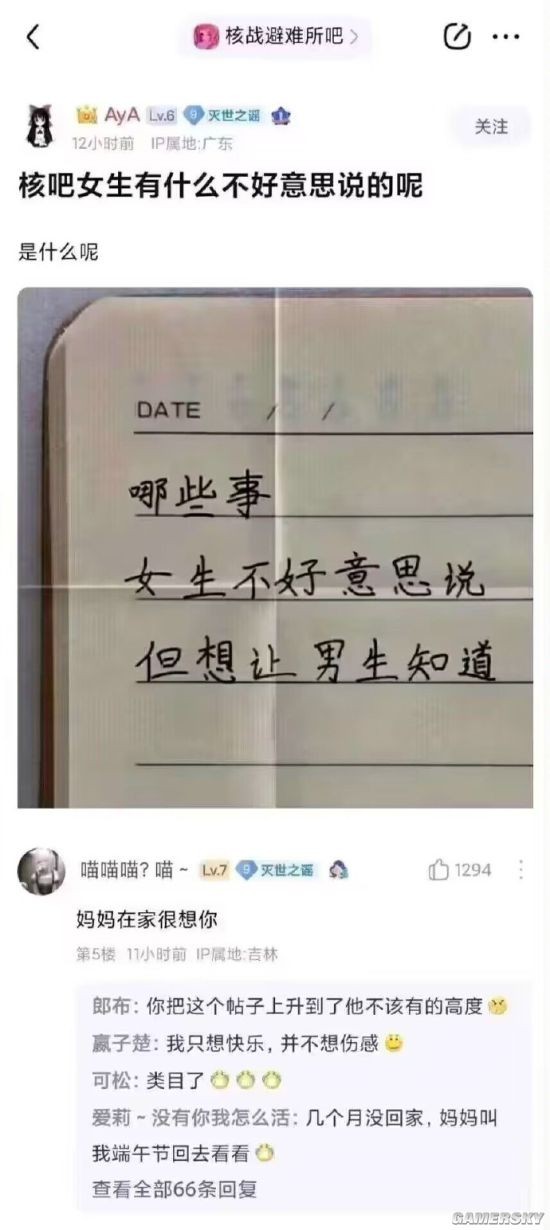 核战避难所吧
AyA Lv.6 9 灭世之谣
12小时前 IP属地:广东
关注
核吧女生有什么不好意思说的呢
是什么呢
DATE / /
哪些事
女生不好意思说
但想让男生知道
喵喵喵？喵~ Lv.7 9 灭世之谣
1294
妈妈在家很想你
第5楼 11小时前 IP属地:吉林
郎布：你把这个帖子上升到了他不该有的高度
嬴子楚：我只想快乐，并不想伤感
可松：类目了
爱莉~没有你我怎么活：几个月没回家，妈妈叫
我端午节回去看看
查看全部66条回复
GAMERSKY